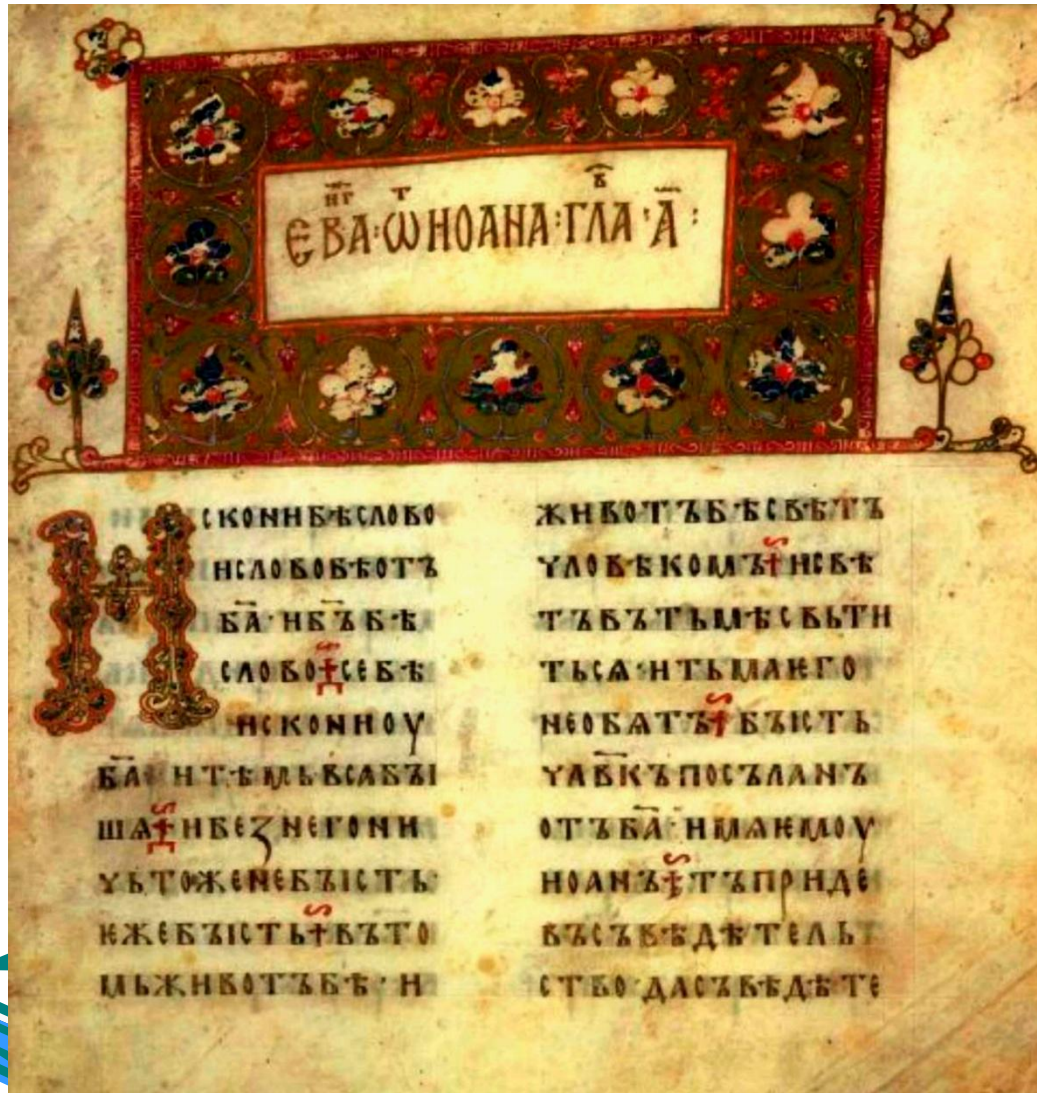 ЄВАНГ҃·Ѡ҃Т ИОАНА·ГЛАВ·А҃·
ИСКОНИБѢСЛОВО
ИСЛОВОБѢОТЪ
БА҃·ИБЪ҃БѢ
СЛОВО СЕБѢ
ИСКОНИОУ
БА҃ ИТѢМЬВСꙖБꙐ
ШѦ ИБЕЗНЕГОНИ
ЧЬТОЖЕНЕБꙐСТЬ
ѤЖЕБꙐСТЬ ВЪТО
МЬЖИВОТЪБѢ·И
ЖИВОТЪБѢСВѢТЪ
ЧЛОВѢКОМЪ ИСВѢ
ТЪВЪТЬМѢСВЬТИ
ТЬСѦ·ИТЬМАѤГО
НЕОБѦТЪ БꙐСТЬ
ЧЛ҃ВКЪПОСЪЛАНЪ
ОТЪБА҃·ИМѦѤМОУ
ИОАНЪ ТЪПРИДЕ
ВЪСЪВѢДѢТЕЛЬ
СТВО·ДАСЪВѢДѢТЕ